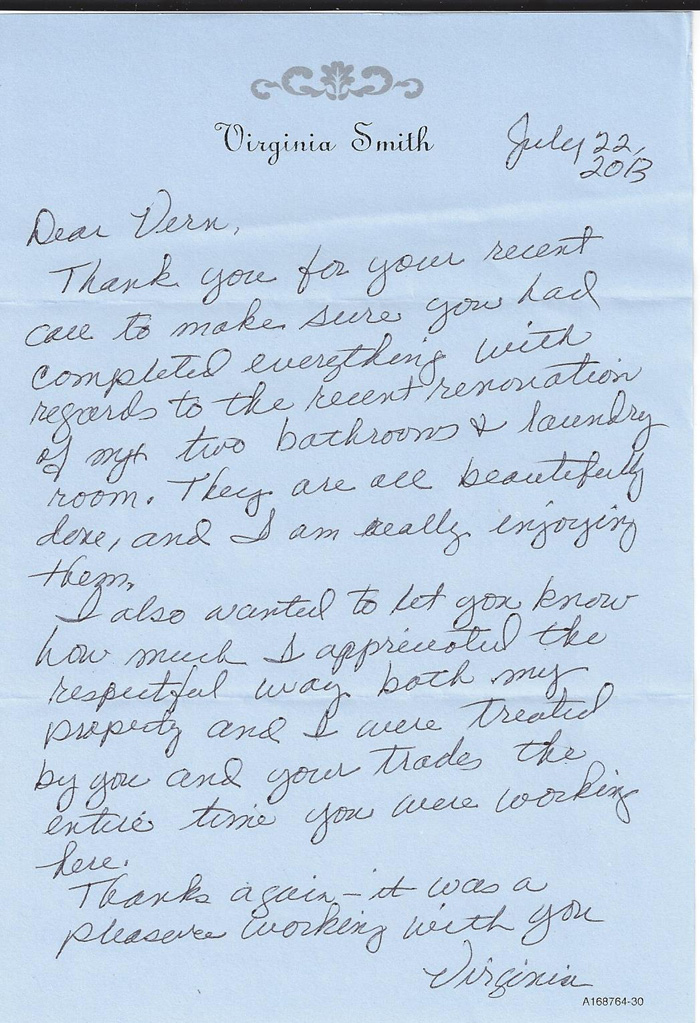 Virginia Smith
July 22,
2013
Dear Vern,
Thank you for your recent
call to make sure you had
completed everything with
regards to the recent renovation
of my two bathrooms & laundry
room. They are all beautifully
done, and I am really enjoying
them.
I also wanted to let you know
how much I appreciated the
respectful way both my
property and I were treated
by you and your trades the
entire time you were working
here.
Thanks again - it was a
pleasure working with you
Virginia
A168764-30